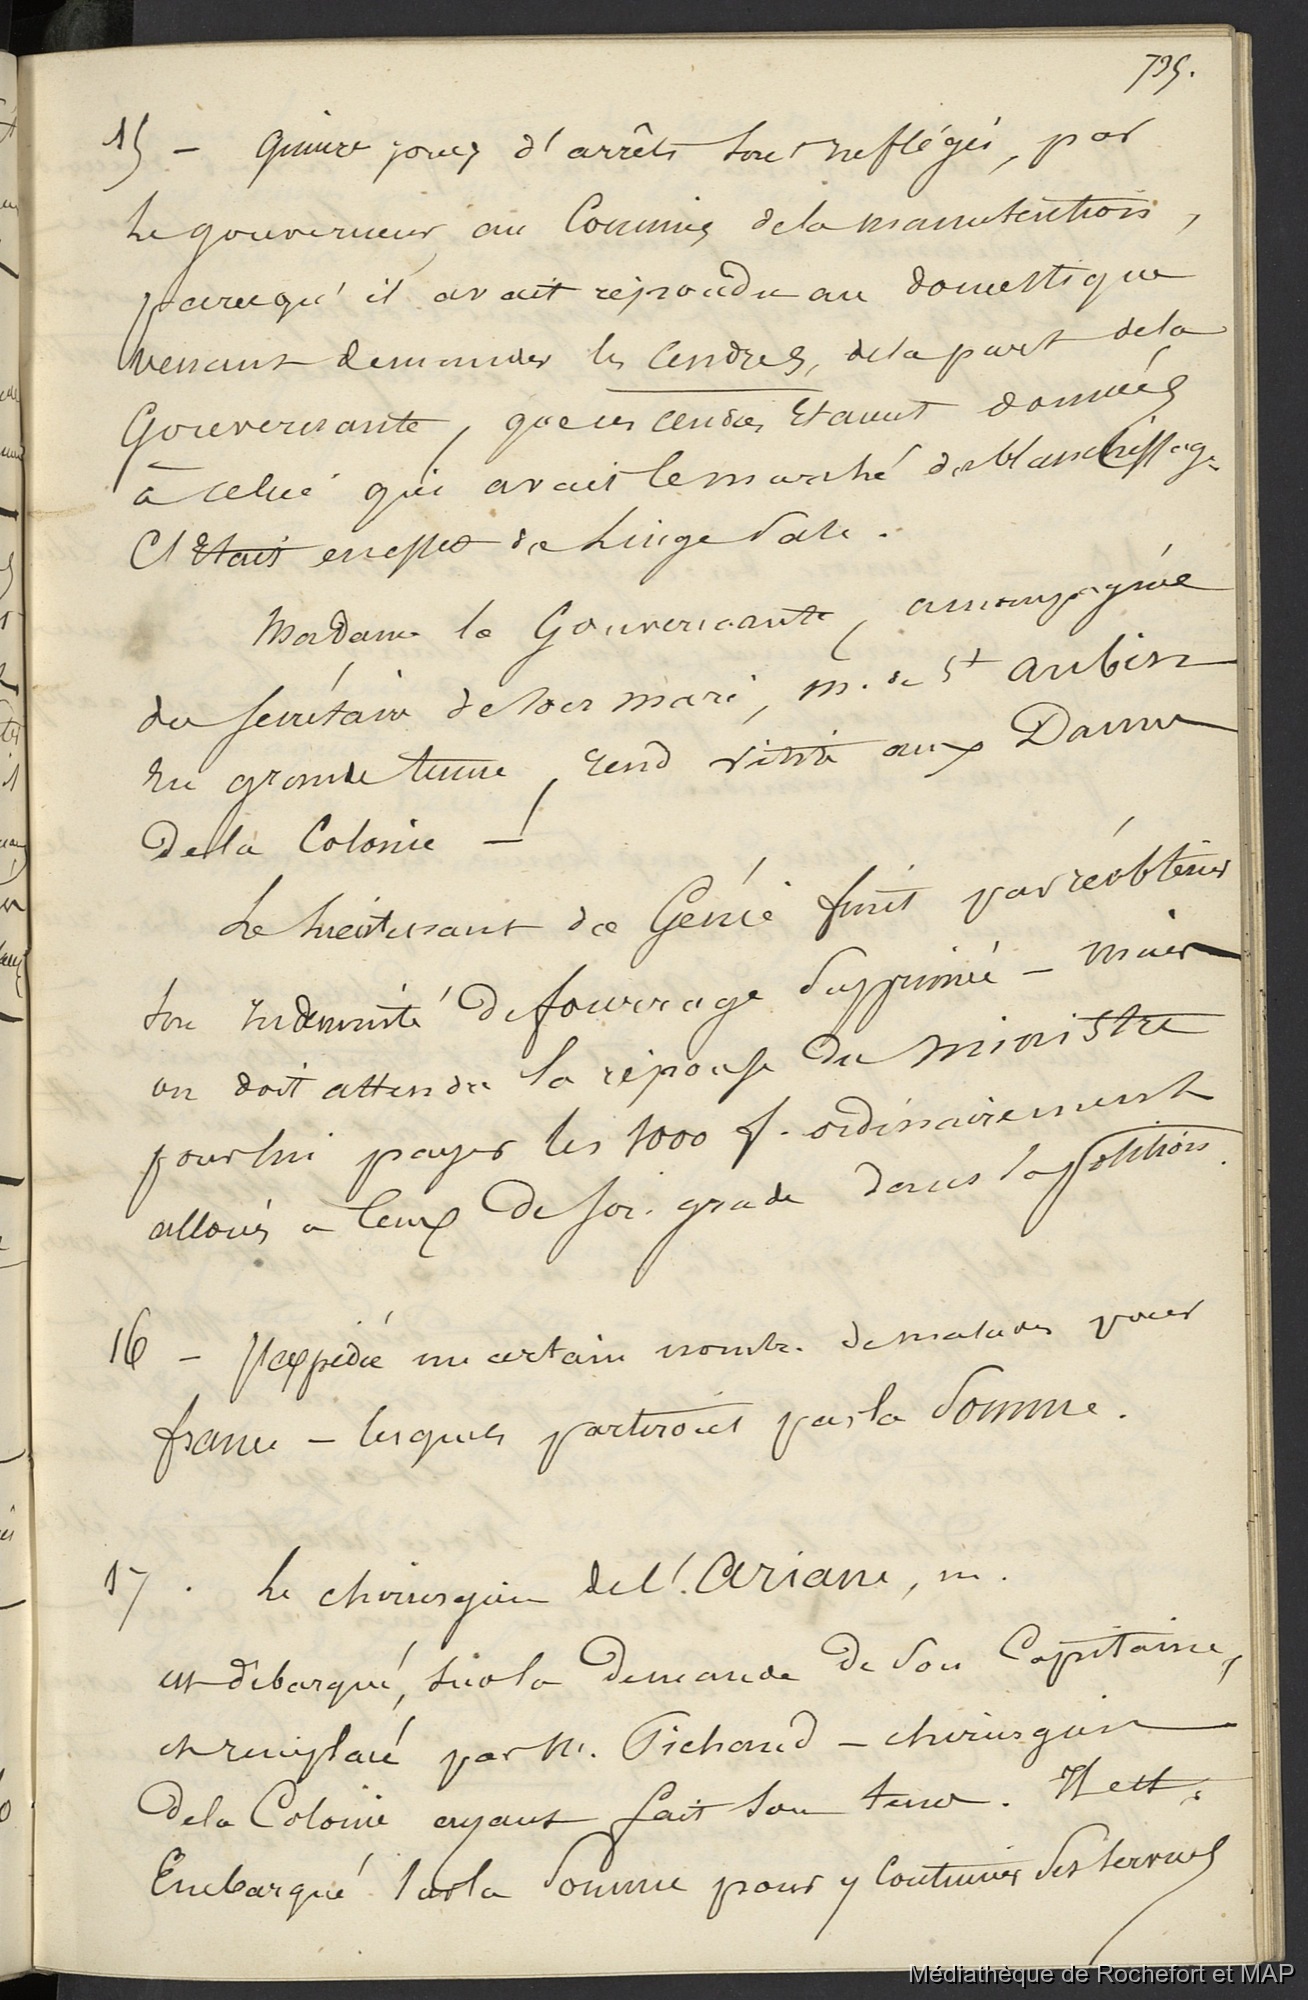 735.
15 – Quinze jours d'arrêts sont infligés, par
le gouverneur, au Commis de la manutention,
parcequ'il avait répondu au domestique
venant demander les cendres, de la part de la
Gouvernante, que ces cendres étaient données
à celui qui avait le marché de blanchissage
C'était en effet de linge sale.
Madame la Gouvernante, accompagnée
du secrétaire de son mari, M. de St Aubin
en grande tenue, rend visite aux Dames
de la Colonie –!
Le lieutenant de Génie finit par réobtenir
son indemnité de fourrage supprimée – mais
on doit attendre la réponse du ministre
pour lui payer les 1000 f. ordinairement
alloués à ceux de son grade dans la position.
16 – J'expédie un certain nombre de malades pour
france – lesquels partiront par la Somme.
17. Le chirurgien de l'Ariane, m.
est débarqué, sur la demande de son Capitaine,
et remplacé par M. Pichaud – chirurgien
de la Colonie ayant fait son tems. Il est
Embarqué sur la Somme pour y continuer ses services
Médiathèque de Rochefort et MAP